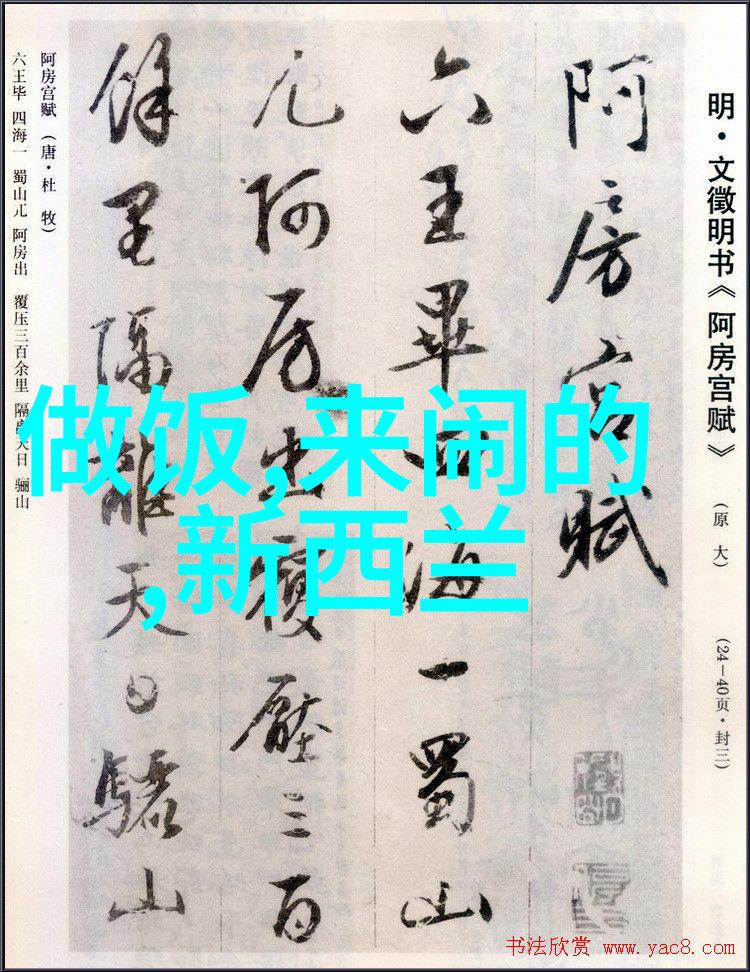 明·文徵明书《阿房宫赋》（原大）（24—40页·封三）
阿房宫賦
六王畢四海一蜀山
兀阿房出覆壓三百
餘里隔離天日驪山
阿房宫赋（唐·杜 牧）
六王毕 四海一 蜀山兀 阿房出 覆压三百余里 隔离天日 骊山
做饭,来闹的
,新西兰
书法欣赏 www.yac8.com